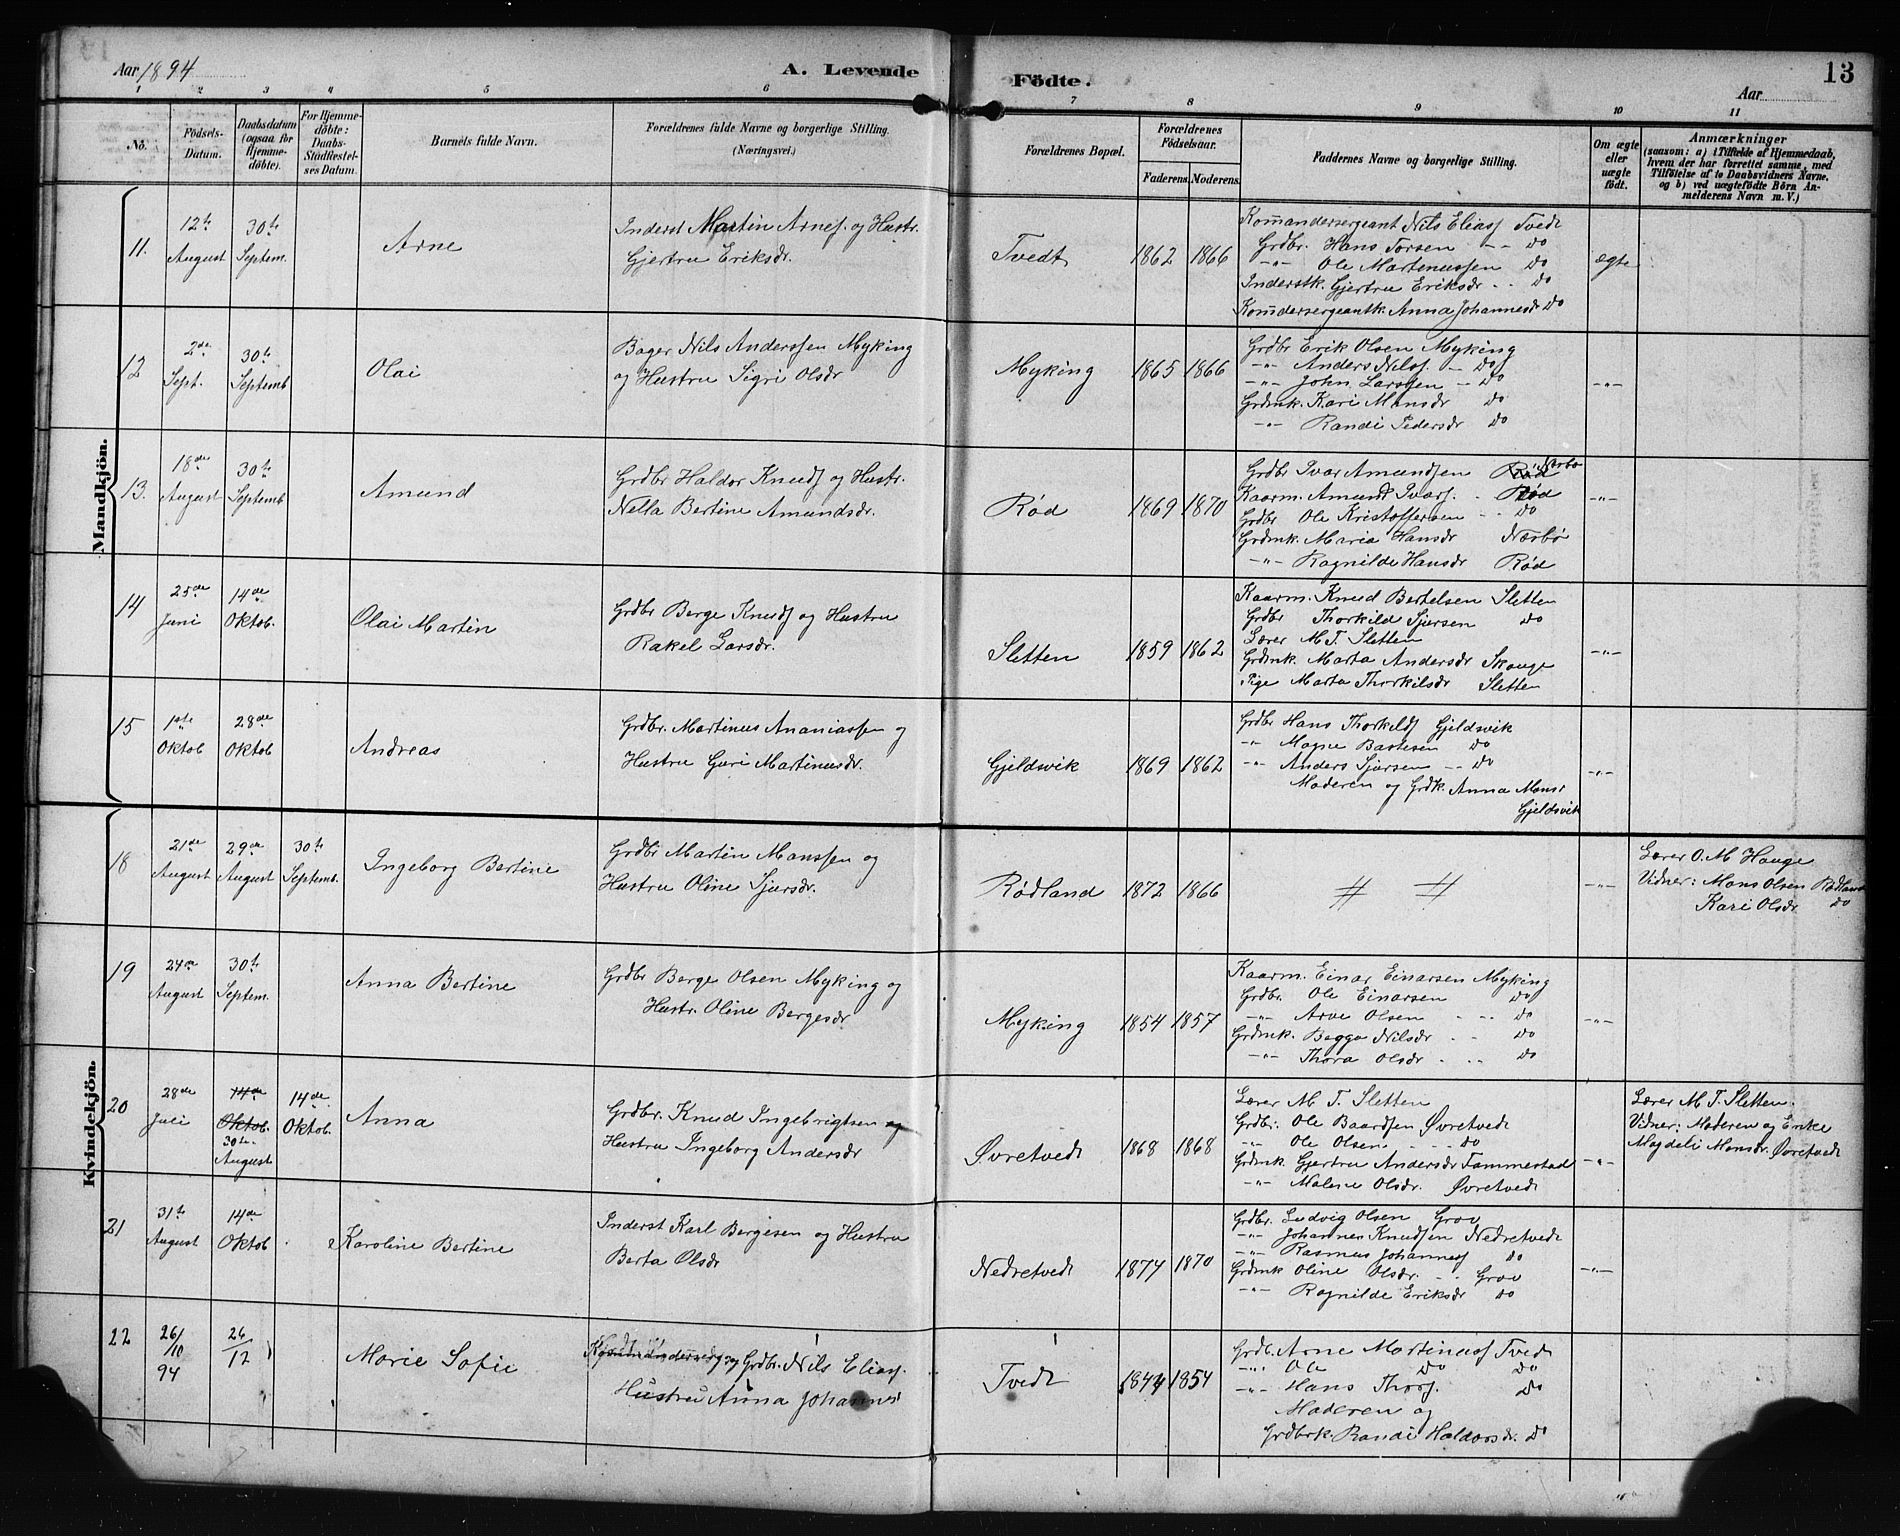 Aar 1894
A. Levende
Födte.
Aar
13
1 2 3 4 5 6 7 8 9 10 11
No.
Födsels-Datum.
Daabsdatum (ogsaa for Hjemmedöbte).
For Hjemmedöbte: Daabs-Stadfæstelses Datum.
Barnets fulde Navn.
Forældrenes fulde Navne og borgerlige Stilling.
(Næringsvei.)
Forældrenes Bopæl.
Forældrenes Födselsaar.
Faderens. Moderens.
Faddernes Navne og borgerlige Stilling.
Om ægte eller uægte födt.
Anmærkninger
(saasom: a) i Tilfælde af Hjemmedaab, hvem der har forrettet samme, med Tilföielse af to Daabsvidners Navne. og b) ved uægtefödte Börn Anmelderens Navn m. V.)
Mandkjön.
11. 12te August 30te Septem. Arne
Inderst Martin Arnes. og Hustr.
Gjertru Eriksdr.
Tvedt 1862 1866
Kommandersergeant Nils Eliass Tvedt
Grdbr. Hans Torsen -- Do
-"- Ole Martenussen Do
Inderstk. Gjertru Eriksdr -- Do
Komdersergeantk. Anna Johannesdr Do
ægte
12 2de Sept. 30te Septemb Olai
Bager Nils Anderssen Myking
og Hustru Sigri Olsdr
Myking 1865 1866
Grdbr Erik Olsen Myking
-"- Anders Nilss. - Do
-"- John Larssen - Do
Grdmk. Kari Monsdr Do
-"- Randi Pedersdr Do
-"-
13. 18de August 30te Septemb Amund
Grdbr Haldor Knuds og Hustr.
Nella Bertine Amundsdr.
Rød 1869 1870
Grdbr Ivar Amundsen Rød Nærbø
Kaarm. Amund Ivars. - Rød
Grdbr Ole Kristoffersen -- Do
Grdmk. Maria Hansdr Nærbø
-"- Ragnilde Hansdr Rød
-"-
14 25de Juni 14de Oktob. Olai Martin
Grdbr Berge Knuds og Hustru
Rakel Larsdr.
Sletten 1859 1862
Kaarm. Knud Bertelsen Sletten
Grdbr Thorkild Sjursen Do
Lærer M. T. Sletten
Grdmk. Marta Andersdr Skauge
Pige Marta Thorkilsdr Sletten
-"-
15 1ste Oktob 28de Oktob Andreas
Grdbr. Martinus Ananiassen og
Hustru Guri Martinusdr.
Gjeldsvik 1869 1862
Grdbr Hans Thorkilds Gjeldsvik
-"- Magne Bastesen Do
-"- Anders Sjursen -- Do
Moderen og Grdk. Anna Mons.
Gjeldsvik
-"-
Kvindekjön.
18 21de August 29de August 30te Septemb. Ingeborg Bertine
Grdbr Martin Monssen og
Hustru Oline Sjursdr.
Rødland 1872 1866
# #
-"-
Lærer O. M. Hauge
Vidner: Mons Olsen Rødland
Kari Olsdr. Do
19 24de August 30te Septem. Anna Bertine
Grdbr Berge Olsen Myking og
Hustr. Oline Bergesdr
Myking 1854 1857
Kaarm. Einar Einarsen Myking
Grdbr. Ole Einarsen Do
-"- Arve Olsen -- Do
Grdmk. Bagga Nilsdr -- Do
-"- Thora Olsdr -- Do
-"-
20 28de Juli 14de Oktob. 30te August 14de Oktob. Anna
Grdbr. Knud Ingebrigtsen og
Hustru Ingeborg Andersdr
Øvretvedt 1868 1868
Lærer M. T. Sletten
Grdbr. Ole Baardsen Øvretvedt
-"- Ole Olsen -- Do
Grdmk Gjertru Andersdr Tammestad
-"- Malene Olsdr. Øvretvedt
-"-
Lærer M. T. Sletten.
Vidner: Moderen og Enke
Magdeli Monsdr. Øvretvedt
21 31te August 14de Oktob Karoline Bertine
Inderst Karl Bergesen og Hustru
Berta Olsdr
Nedretvedt 1874 1870
Grdbr. Ludvig Olsen Grov
-"- Johannes Knudsen Nedretvedt
-"- Rasmus Johanness Do
Grdmk Oline Olsdr. -- Grov
-"- Ragnilde Eriksdr Do
-"-
22 26/10 94 26/12 Marie Sofie
Grdbr. Nils Eliass.
Hustru Anna Johannes
Tvedt 1844 1854
Grdb. Arne Martinuss Tvedt
-"- Ole Do Do
-"- Hans Thors. Do
Moderen og
Grdbrk. Randi Haldorsdr. Do